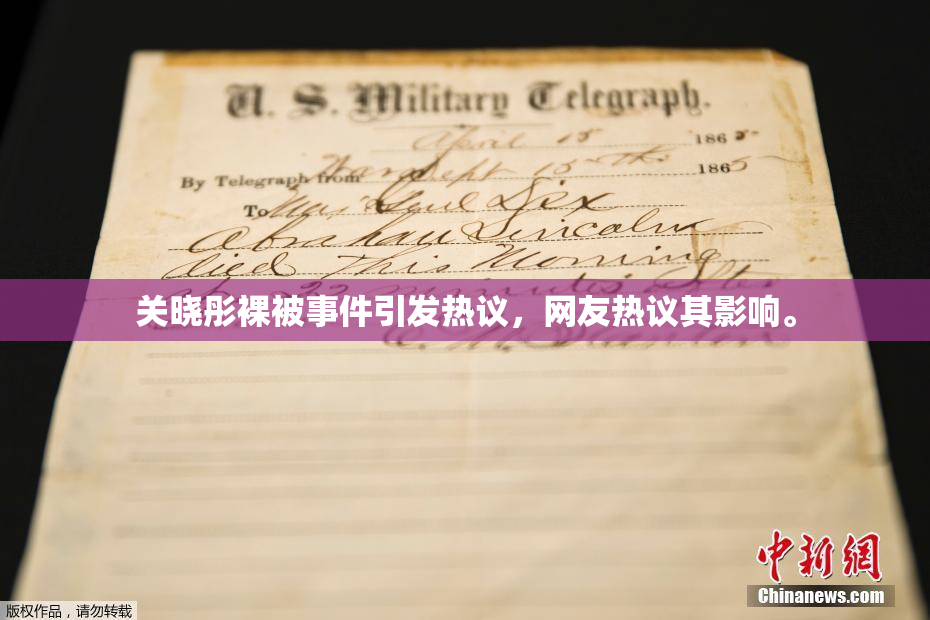 U. S. Military Telegraph.
April 15 1865.
By Telegraph from War Dept 15th 1865
To Maj Genl Dix
Abraham Lincoln
died This Morning
at 22 minutes After
关晓彤裸被事件引发热议，网友热议其影响。
E. M. Stanton
中新网
Chinanews.com
版权作品，请勿转载